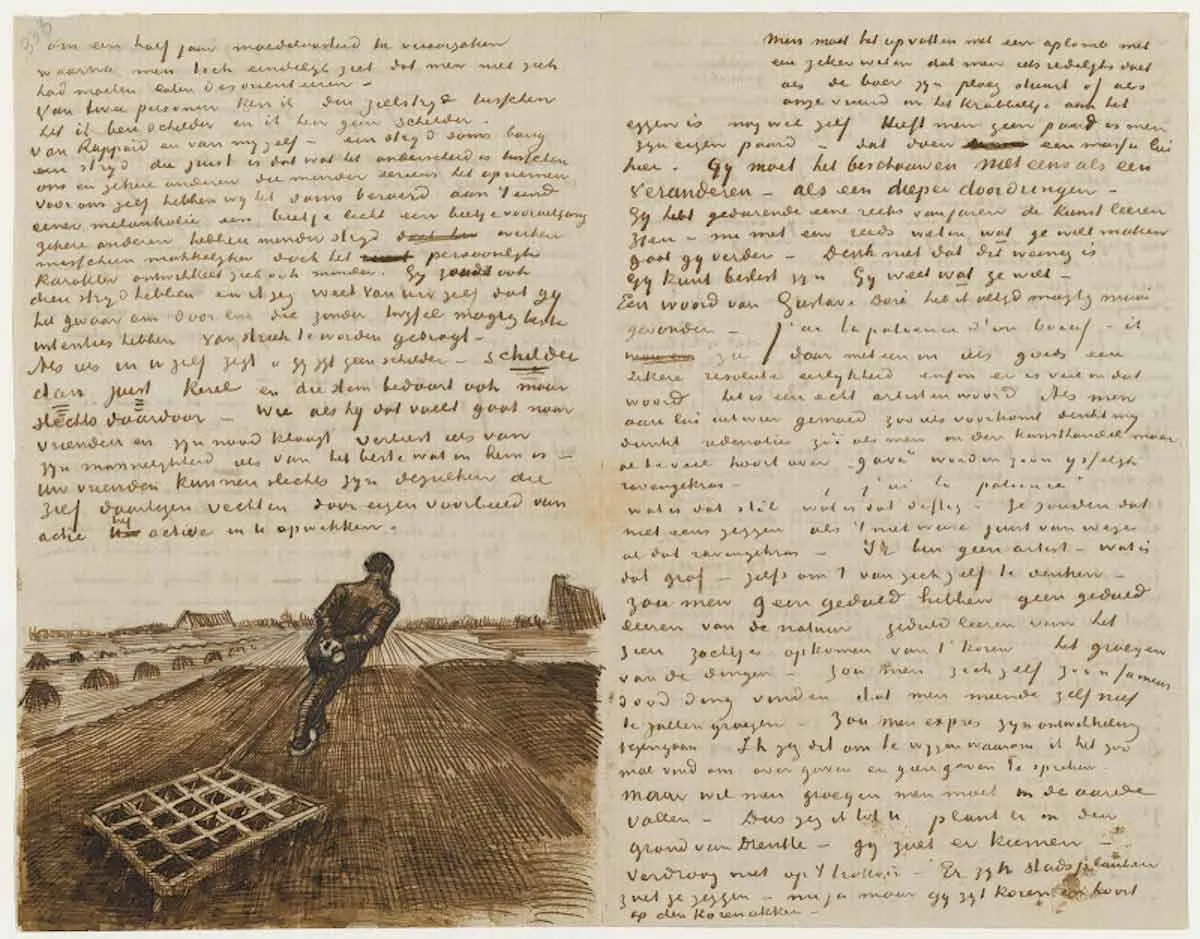 om een half jaar moedeloosheid te veroorzaken
waarna men toch eindelijk ziet dat men niet zich
had moeten laten desorienteren –
Van twee personen ken ik den zielstrijd tusschen
het ik ben schilder en ik ben geen schilder.
van Rappard en van mijzelf – een strijd soms bang
een strijd die juist is dat wat het onderscheid is tusschen
ons en zekere anderen die minder serieus het opnemen
voor ons zelf hebben wij het soms beroerd aan 't eind
eener melankolie een beetje licht een beetje vooruitgang
zekere anderen hebben minder strijd doch werken
misschien makkelijker doch het persoonlijk
karakter ontwikkelt zich ook minder. Gij zoudt ook
dien strijd hebben en ik zeg weet van uw zelf dat gij
het gevaar om door lui die zonder twijfel magtig beste
intenties hebben van streek te worden gebragt –
Als iets in U zelf zegt "gij zijt geen schilder – schilder
dan juist kerel en die stem bedaart ook maar
slechts daardoor – Wie als hij dat voelt gaat naar
vrienden en zijn nood klaagt verliest iets van
zijn mannelijkheid iets van het beste wat in hem is –
Uw vrienden kunnen slechts zijn dezulken die
zelf daartegen vechten door eigen voorbeeld van
actie het active in U opwekken.
Men moet het opvatten met een aplomb met
een zeker weten dat men iets redelijks doet
als de boer zijn ploeg stuurt of als
onze vriend in het krabbeltje aan het
eggen is nog wel zelf Heeft men geen paard is men
zijn eigen paard – dat doen een massa lui
hier. Gij moet het beschouwen niet eens als een
veranderen – als een dieper doordringen –
Gij hebt gedurende eene reeks van jaren de kunst leeren
zien – nu met een reeds weten wat ge wilt maken
gaat gij verder – Denk niet dat dit weinig is
Gij kunt beslist zijn Gij weet wat ge wilt –
Een woord van Gustave Doré heb ik altijd magtig mooi
gevonden – j'ai la patience d'un boeuf – ik
zie daar meteen in iets goeds een
zekere resolute eerlijkheid enfin er is veel in dat
woord het is een echt artistenwoord Als men
aan lui uit wier gemoed zoo iets voortkomt denkt mij
dunkt redenaties zoo als men in den kunsthandel maar
al te veel hoort over "gave" worden zoon ijselijk
ravengekras – "j'ai la patience"
wat is dat stil wat is dat deftig – Je zouden dat
niet eens zeggen als 't niet ware juist van wege
al dat ravengekras – Ik ben geen artist – wat is
dat grof – zelfs om 't van zich zelf te denken –
zou men geen geduld hebben geen geduld
leeren van de natuur geduld leeren van het
zien zachtjes opkomen van 't koren het groeijen
van de dingen – zou men zichzelf zoon fameus
dood ding vinden dat men meende zelf niet
te zullen groeijen – Zou men expres zijn ontwikkeling
tegengaan Ik zeg dit om te wijzen waarom ik het zoo
mal vind om over gaven en geen gaven te spreken.
Maar wil men groeijen men moet in de aarde
vallen – Dus zeg ik tot U plant U in den
grond van Drenthe – gij zult er kiemen –
Verdroog niet op 't trottoir – Er zijn stadsplanten
zult je zeggen – nu ja maar gij zijt koren en hoort
op den korenakker –